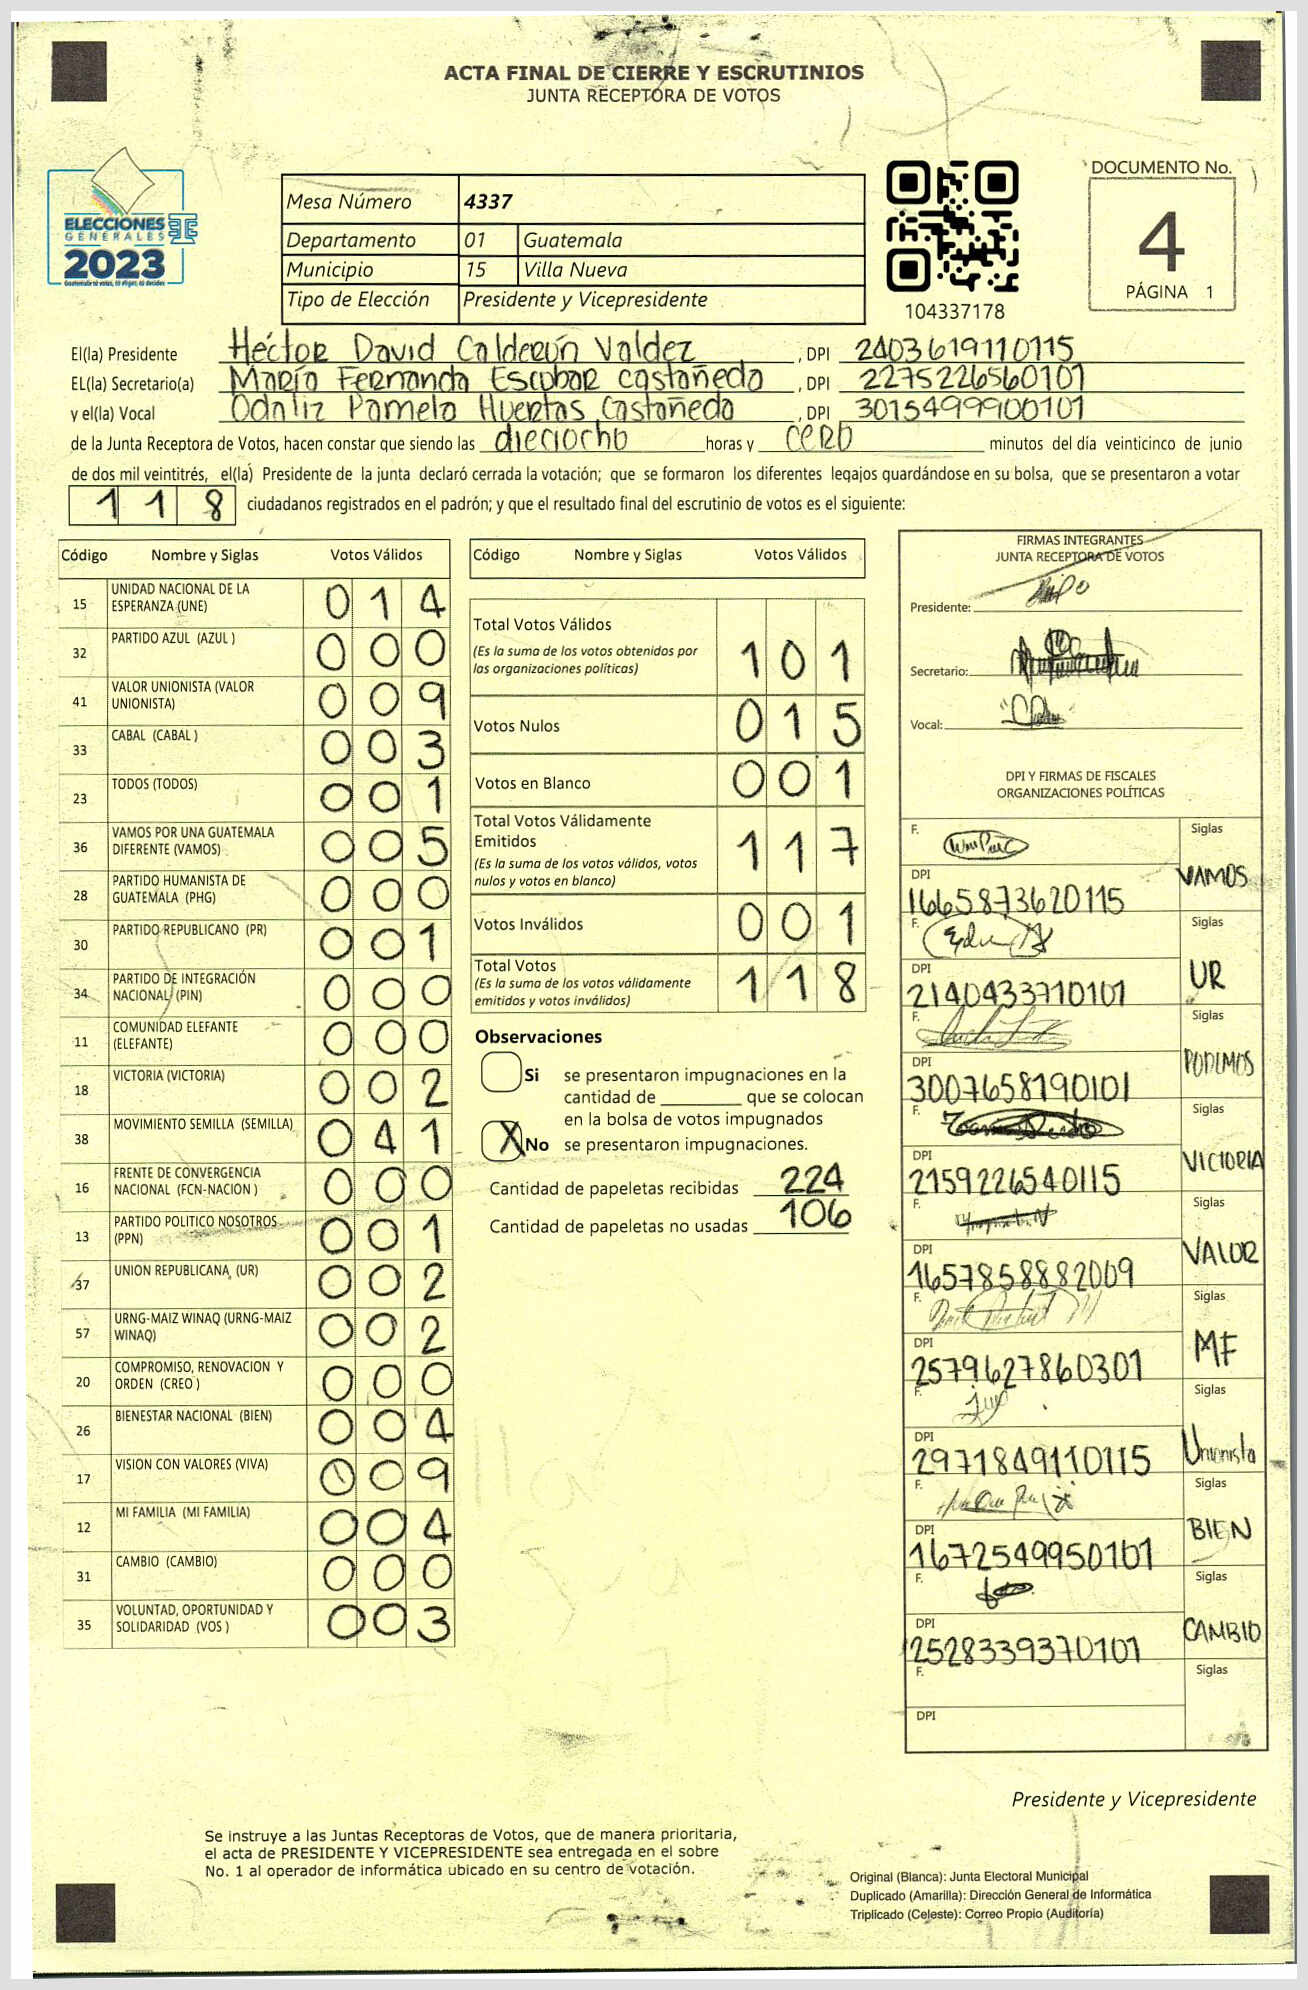 ACTA FINAL DE CIERRE Y ESCRUTINIOS
JUNTA RECEPTORA DE VOTOS
ELECCIONES
GENERALES
2023
Mesa Número 4337
Departamento 01 Guatemala
Municipio 15 Villa Nueva
Tipo de Elección Presidente y Vicepresidente
104337178
DOCUMENTO No.
4
PÁGINA 1
El(la) Presidente Héctor David Calderón Valdez , DPI 2403619110115
EL(la) Secretario(a) María Fernanda Escobar Castañeda , DPI 2275226560101
y el(la) Vocal Odaliz Pamela Huertas Castañeda , DPI 3015499900101
de la Junta Receptora de Votos, hacen constar que siendo las dieciocho horas y cero minutos del día veinticinco de junio
de dos mil veintitrés, el(la) Presidente de la junta declaró cerrada la votación; que se formaron los diferentes legajos guardándose en su bolsa, que se presentaron a votar
118 ciudadanos registrados en el padrón; y que el resultado final del escrutinio de votos es el siguiente:
Código Nombre y Siglas Votos Válidos
15 UNIDAD NACIONAL DE LA ESPERANZA (UNE) 014
32 PARTIDO AZUL (AZUL ) 000
41 VALOR UNIONISTA (VALOR UNIONISTA) 009
33 CABAL (CABAL ) 003
23 TODOS (TODOS) 001
36 VAMOS POR UNA GUATEMALA DIFERENTE (VAMOS) 005
28 PARTIDO HUMANISTA DE GUATEMALA (PHG) 000
30 PARTIDO REPUBLICANO (PR) 001
34 PARTIDO DE INTEGRACIÓN NACIONAL (PIN) 000
11 COMUNIDAD ELEFANTE (ELEFANTE) 000
18 VICTORIA (VICTORIA) 002
38 MOVIMIENTO SEMILLA (SEMILLA) 041
16 FRENTE DE CONVERGENCIA NACIONAL (FCN-NACION ) 000
13 PARTIDO POLITICO NOSOTROS (PPN) 001
37 UNION REPUBLICANA (UR) 002
57 URNG-MAIZ WINAQ (URNG-MAIZ WINAQ) 002
20 COMPROMISO, RENOVACION Y ORDEN (CREO ) 000
26 BIENESTAR NACIONAL (BIEN) 004
17 VISION CON VALORES (VIVA) 009
12 MI FAMILIA (MI FAMILIA) 004
31 CAMBIO (CAMBIO) 000
35 VOLUNTAD, OPORTUNIDAD Y SOLIDARIDAD (VOS ) 003
Código Nombre y Siglas Votos Válidos
Total Votos Válidos 101
(Es la suma de los votos obtenidos por
las organizaciones políticas)
Votos Nulos 015
Votos en Blanco 001
Total Votos Válidamente
Emitidos 117
(Es la suma de los votos válidos, votos
nulos y votos en blanco)
Votos Inválidos 001
Total Votos 118
(Es la suma de los votos válidamente
emitidos y votos inválidos)
Observaciones
Si se presentaron impugnaciones en la
cantidad de ________ que se colocan
en la bolsa de votos impugnados
X No se presentaron impugnaciones.
Cantidad de papeletas recibidas 224
Cantidad de papeletas no usadas 106
FIRMAS INTEGRANTES
JUNTA RECEPTORA DE VOTOS
Presidente:
Secretario:
Vocal:
DPI Y FIRMAS DE FISCALES
ORGANIZACIONES POLÍTICAS
F. Siglas
DPI VAMOS
1665873620115
F. Siglas
DPI UR
2140433710101
F. Siglas
DPI PODEMOS
3007658190101
F. Siglas
DPI VICTORIA
2159226540115
F. Siglas
DPI VALOR
1657858882009
F. Siglas
DPI MF
2579627860301
F. Siglas
DPI Unionista
2971849110115
F. Siglas
DPI BIEN
1672549950101
F. Siglas
DPI CAMBIO
2528339370101
F. Siglas
DPI
Presidente y Vicepresidente
Se instruye a las Juntas Receptoras de Votos, que de manera prioritaria,
el acta de PRESIDENTE Y VICEPRESIDENTE sea entregada en el sobre
No. 1 al operador de informática ubicado en su centro de votación.
Original (Blanca): Junta Electoral Municipal
Duplicado (Amarilla): Dirección General de Informática
Triplicado (Celeste): Correo Propio (Auditoría)